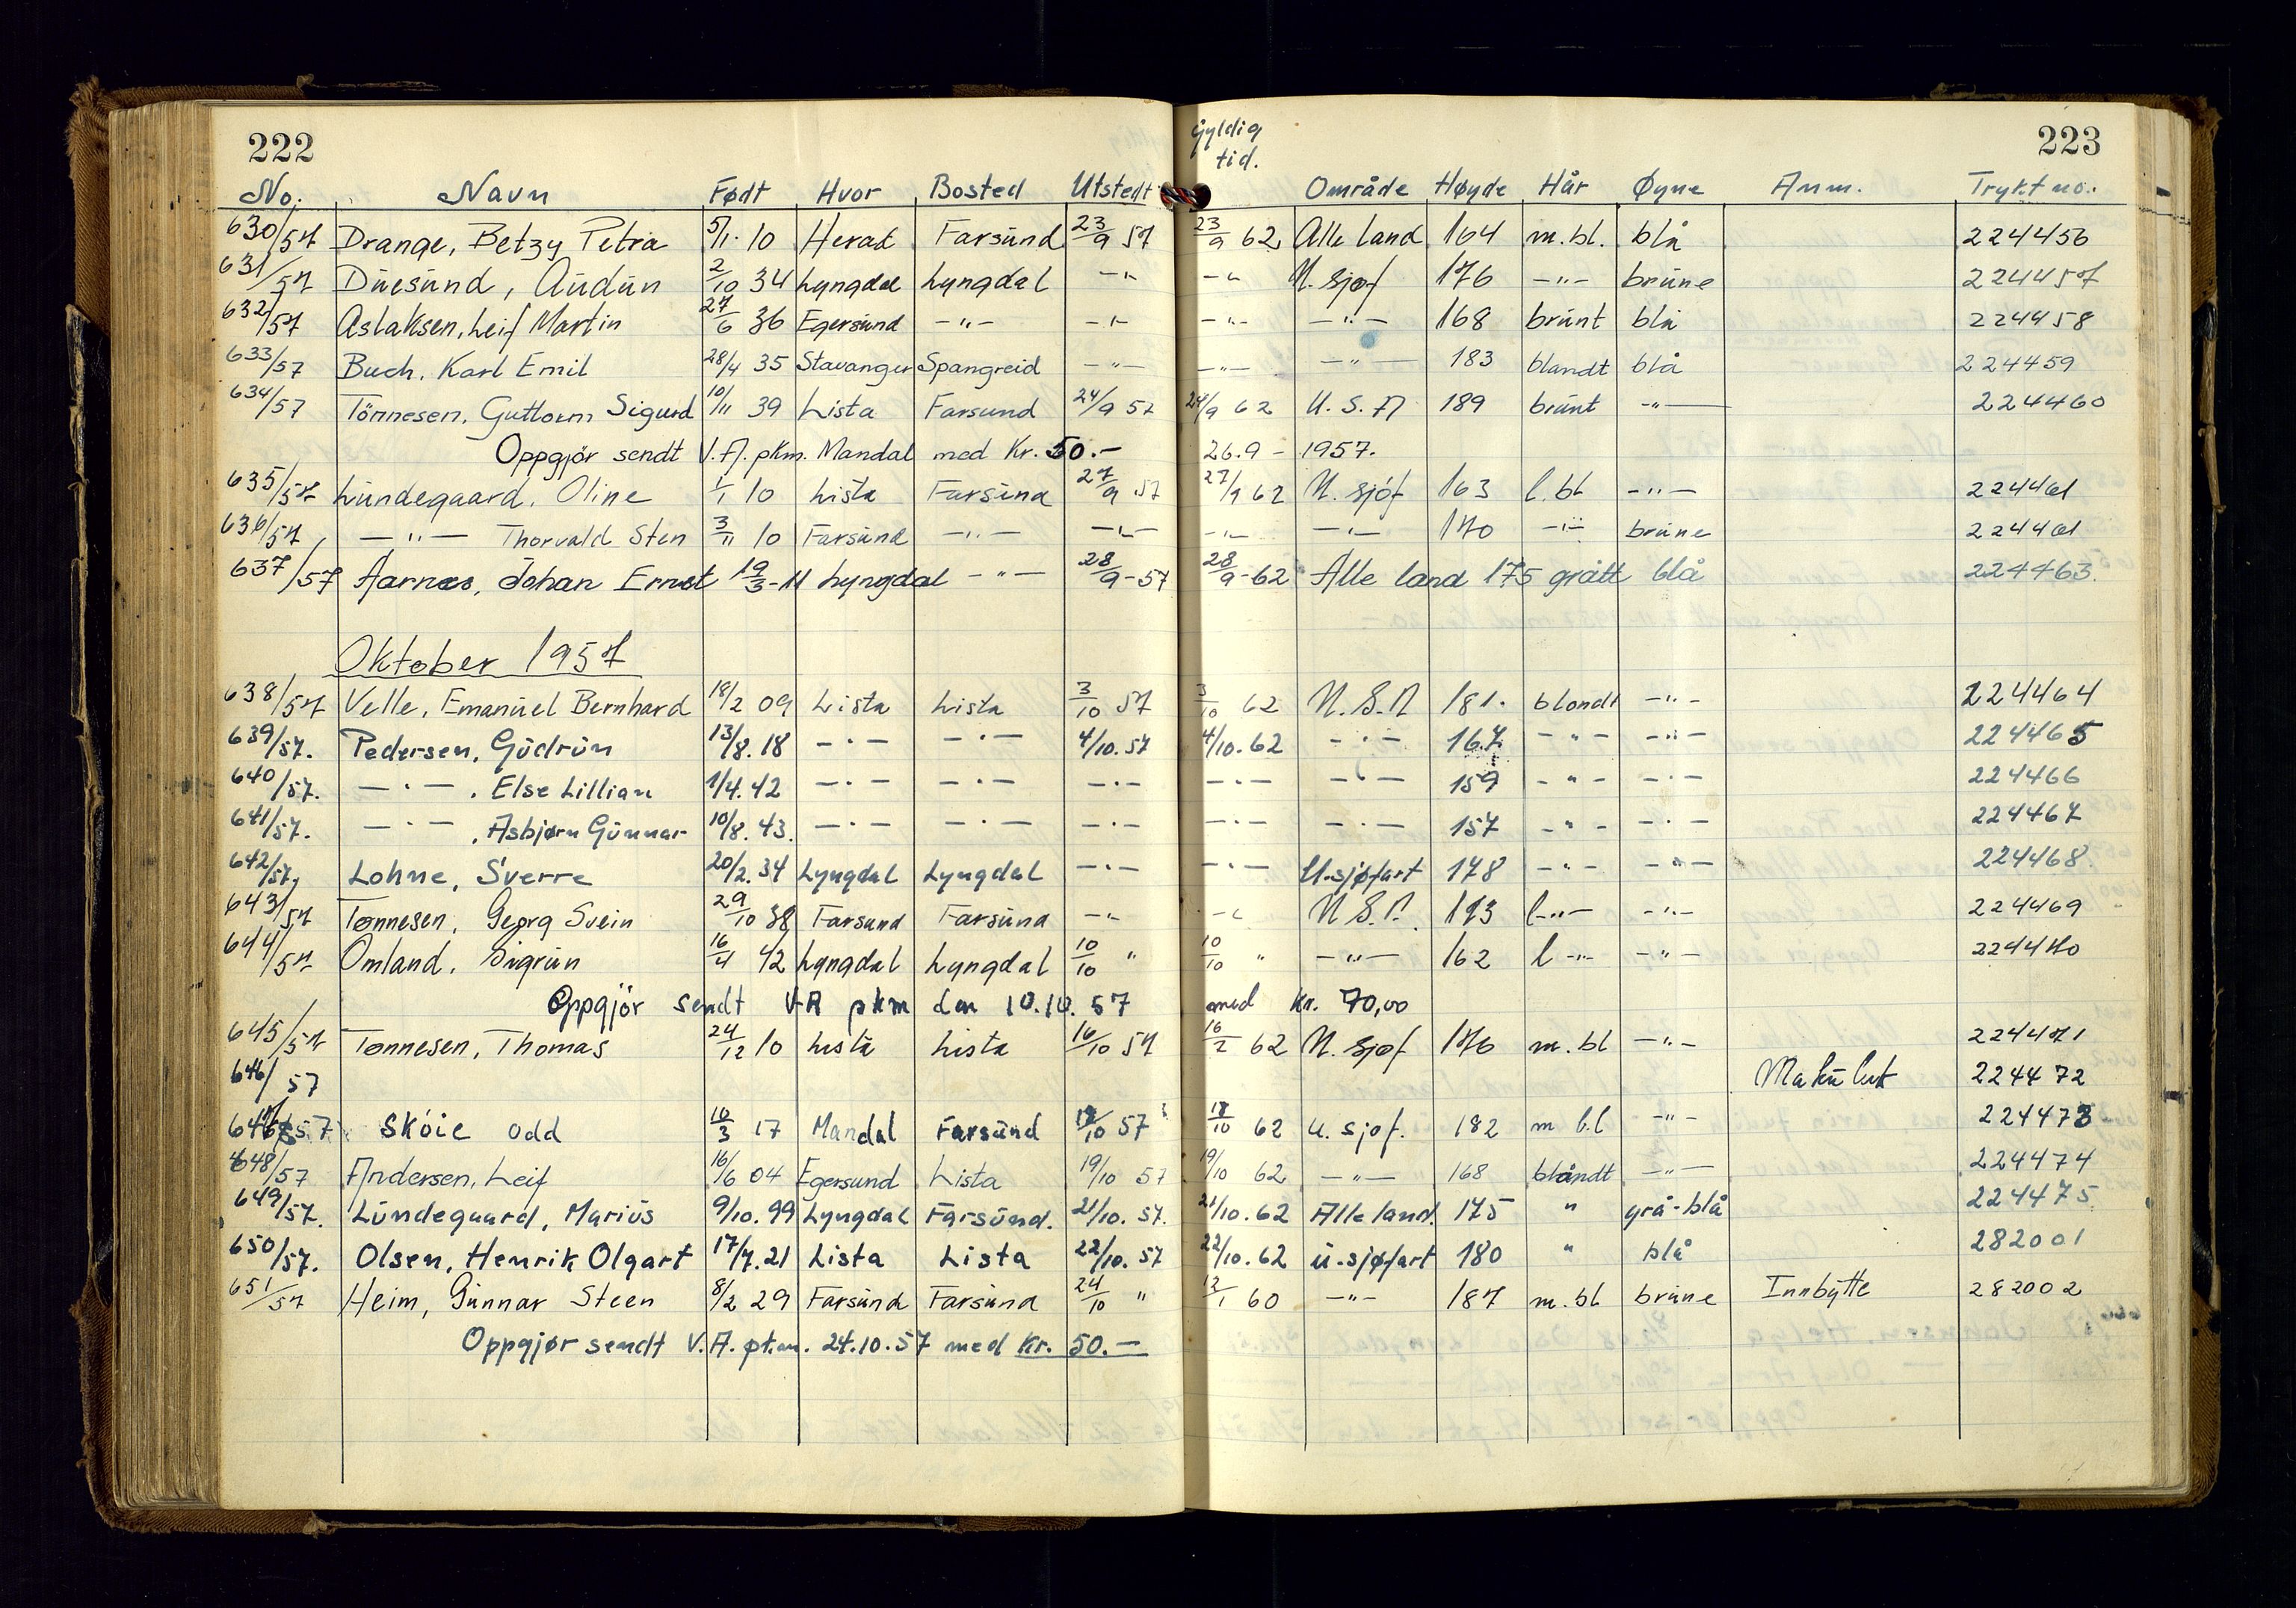 222
Gyldig
tid.
223
No. Navn Født Hvor Bosted Utstedt Område Høyde Hår Øyne Anm. Trykt no.
630/57 Drange, Betzy Petra 5/1. 10 Herad Farsund 23/9 57 23/9 62 Alle land 164 m.bl. blå 224456
631/57 Duesund, Audun 2/10 34 Lyngdal Lyngdal -"- -"- U. sjøf 176 -"- brune 224457
632/57 Aslaksen, Leif Martin 27/6 36 Egersund -"- -"- -"- -"- 168 brunt blå 224458
633/57 Buch, Karl Emil 28/4 35 Stavanger Spangreid -"- -"- -"- 183 blandt blå 224459
634/57 Tönnesen, Guttorm Sigurd 10/11 39 Lista Farsund 24/9 57 24/9 62 U. S. A 189 brunt -"- 224460
Oppgjör sendt V.A. pkm. Mandal med Kr. 50.- 26.9 - 1957.
635/57 Lundegaard, Oline 1/1 10 Lista Farsund 27/9 57 27/9 62 U. sjöf 163 l.bl -"- 224461
636/57 -"- Thorvald Sten 3/11 10 Farsund -"- -"- -"- -"- 170 -"- brune 224461
637/57 Aarnes, Johan Ernst 19/3-11 Lyngdal -"- 28/9-57 28/9-62 Alle land 175 grått blå 224463.
Oktober 1957
638/57 Velle, Emanuel Bernhard 18/2 09 Lista Lista 3/10 57 3/10 62 U.S.A 181. blondt -"- 224464
639/57. Pedersen, Gudrun 13/8.18 -"- -"- 4/10.57 4/10.62 -"- 167 -"- -"- 224465
640/57. -"-, Else Lillian 1/4.42 -"- -"- -"- -"- -"- 159 -"- -"- 224466
641/57. -"-, Asbjørn Gunnar 10/8.43. -"- -"- -"- -"- -"- 157 -"- -"- 224467
642/57. Lohne, Sverre 20/2.34 Lyngdal Lyngdal -"- -"- U-sjøfart 178 -"- -"- 224468.
643/57 Tønnesen, Georg Svein 29/10 38 Farsund Farsund -"- -"- U.S.A. 173 l-"- -"- 224469
644/57 Omland, Sigrun 16/4 42 Lyngdal Lyngdal 10/10 " 10/10 " -"- 162 l-"- -"- 224470
Oppgjör sendt VA pkm den 10.10.57 med kr. 70,00
645/57 Tønnesen, Thomas 24/12 10 Lista Lista 16/10 57 16/2 62 U. sjøf 176 m.bl -"- 224471
646/57 Makulert 224472
647/57 Sköie Odd 10/3 17 Mandal Farsund 18/10 57 18/10 62 U. sjøf. 182 m b.l -"- 224473
648/57 Andersen, Leif 16/6 04 Egersund Lista 19/10 57 19/10 62 -"- 168 blåndt -"- 224474
649/57. Lundegaard, Marius 9/10.99 Lyngdal Farsund. 21/10. 57. 21/10.62 Alle land. 175 " grå-blå 224475
650/57. Olsen, Henrik Olgart 17/7.21 Lista Lista 22/10. 57 22/10.62 U-sjøfart 180 " blå 282001
651/57 Heim, Gunnar Steen 8/2 29 Farsund Farsund 24/10 " 12/1 60 -"- 187 m.bl brune Innbytte 282002
Oppgjør sendt V.A. pt.m. 24.10.57 med Kr. 50.-